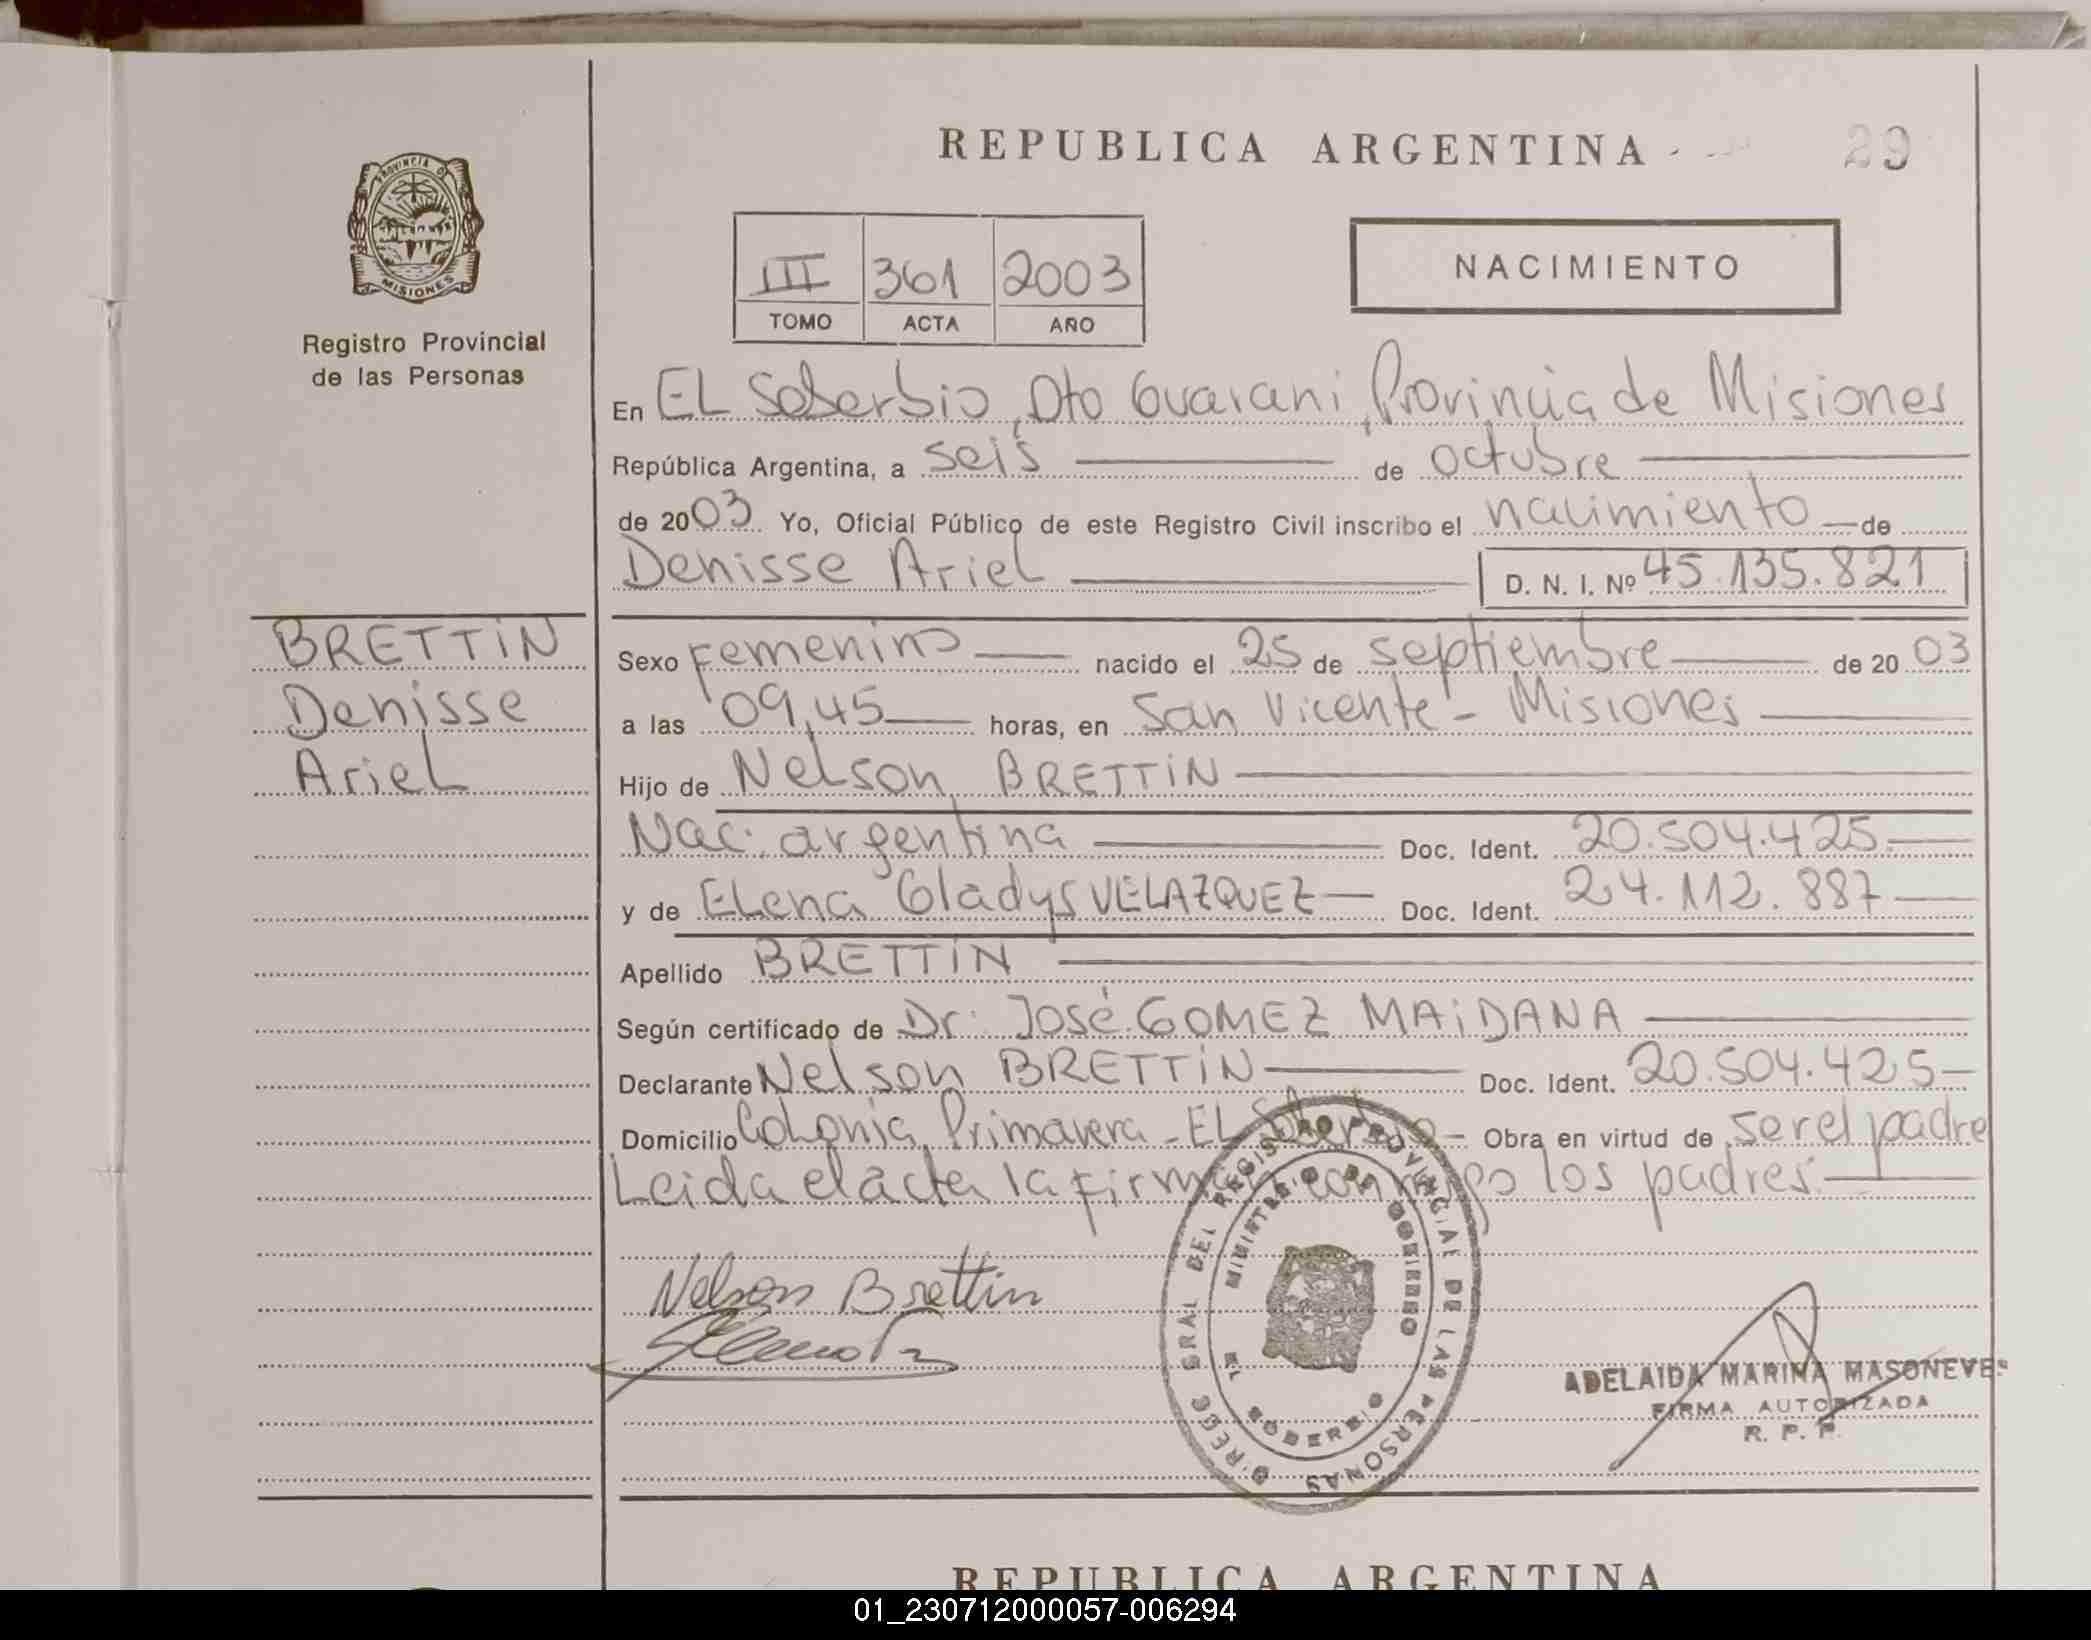 REPUBLICA ARGENTINA
29
PROVINCIA DE
MISIONES
Registro Provincial
de las Personas
III 361 2003
TOMO ACTA AÑO
NACIMIENTO
En EL Soberbio, Dto Guarani, Provincia de Misiones
República Argentina, a seis de octubre
de 2003 Yo, Oficial Público de este Registro Civil inscribo el nacimiento de
Denisse Ariel D. N. I. Nº 45.135.821
BRETTIN
Denisse
Ariel
Sexo Femenino nacido el 25 de septiembre de 2003
a las 09,45 horas, en San Vicente - Misiones
Hijo de Nelson BRETTIN
Nac. argentina Doc. Ident. 20.504.425.
y de ELena Gladys VELAZQUEZ Doc. Ident. 24.112.887
Apellido BRETTIN
Según certificado de Dr. José GOMEZ MAIDANA
Declarante Nelson BRETTIN Doc. Ident. 20.504.425
Domicilio Colonia Primavera - EL Soberbio - Obra en virtud de ser el padre
Leida el acta la firman conmigo los padres.
Nelson Brettin
REGISTRO PROVINCIAL DE LAS PERSONAS
MINISTERIO DE GOBIERNO
EL SOBERBIO
ADELAIDA MARINA MASONEVES
FIRMA AUTORIZADA
R. P. P.
REPUBLICA ARGENTINA
01_230712000057-006294